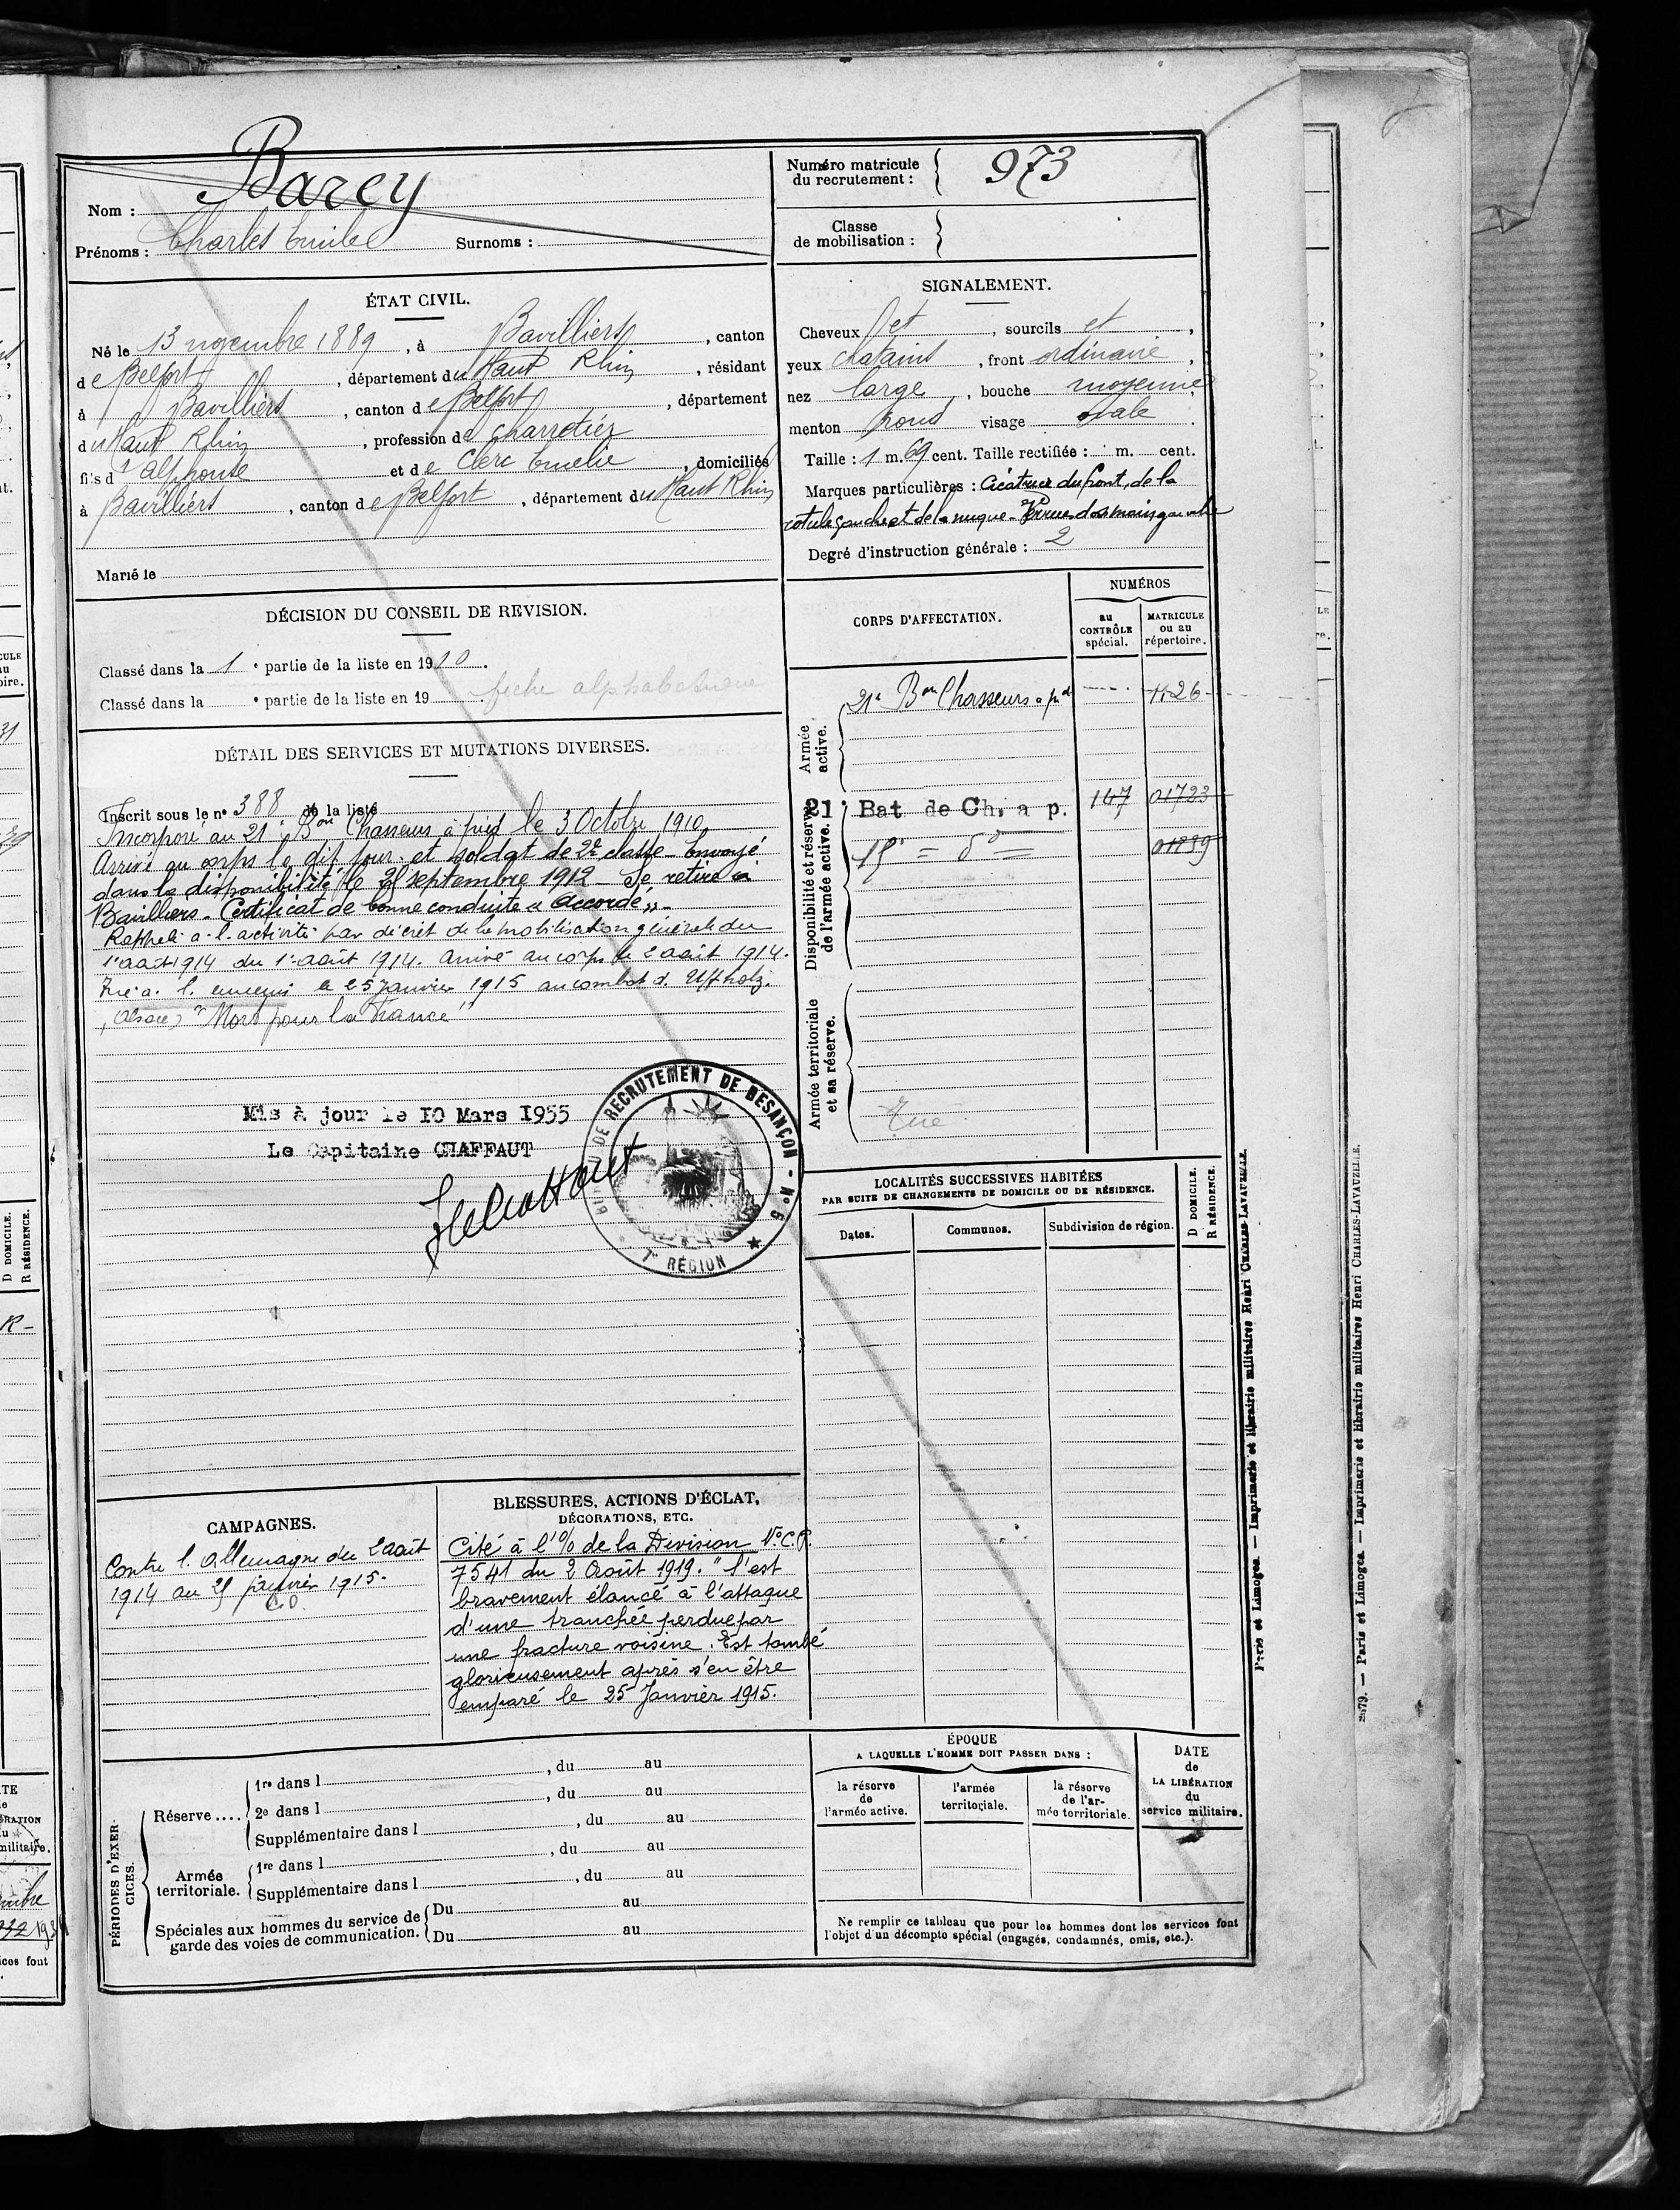 Barey
Nom :
Prénoms : Charles Emile Surnoms :
Numéro matricule
du recrutement : 973
Classe
de mobilisation :
ÉTAT CIVIL.
Né le 13 novembre 1889, à Bavilliers, canton
de Belfort, département du Haut Rhin, résidant
à Bavilliers, canton de Belfort, département
du Haut Rhin, profession de charretier
fils d' alphonse et de Clerc Emelie, domiciliés
à Bavilliers, canton de Belfort, département du Haut Rhin
Marié le
SIGNALEMENT.
Cheveux et, sourcils et,
yeux chatains, front ordinaire,
nez large, bouche moyenne,
menton rond visage ovale.
Taille : 1 m. 69 cent. Taille rectifiée : m. cent.
Marques particulières : Cicatrice du front, de la
rotule gauche et de la nuque - Verrue dos main gauche
Degré d'instruction générale : 2
DÉCISION DU CONSEIL DE REVISION.
Classé dans la 1 e partie de la liste en 1910.
Classé dans la e partie de la liste en 19
fiche alphabétique
DÉTAIL DES SERVICES ET MUTATIONS DIVERSES.
Inscrit sous le no 388 de la liste
Incorporé au 21e Bon Chasseurs à pied le 3 Octobre 1910
Arrivé au corps le dit jour et soldat de 2e classe - Envoyé
dans la disponibilité le septembre 1912 - Se retire à
Bavilliers - Certificat de bonne conduite " Accordé "
Rappelé à l'activité par décret de la mobilisation générale du
1er août 1914 du 1er août 1914. Arrivé au corps le 2 août 1914.
Tué à l'ennemi le 25 janvier 1915 au combat d'Uffholz.
(Alsace) "Mort pour la France"
Mis à jour le 10 Mars 1955
Le Capitaine CHAFFAUT
DE RECRUTEMENT DE BESANÇON - No 6
7me RÉGION
CORPS D'AFFECTATION.
NUMÉROS
au
CONTRÔLE
spécial.
MATRICULE
ou au
répertoire.
Armée
active.
21e Bon Chasseurs à pd 1126
Disponibilité et réserve
de l'armée active.
21e Bat de Ch. a p. 147 01723
15e = do = 01889
Armée territoriale
et sa réserve.
Tué
LOCALITÉS SUCCESSIVES HABITÉES
PAR SUITE DE CHANGEMENTS DE DOMICILE OU DE RÉSIDENCE.
Dates.
Communes.
Subdivision de région.
D DOMICILE.
R RÉSIDENCE.
CAMPAGNES.
Contre l'Allemagne du 2 août
1914 au 25 janvier 1915.
BLESSURES, ACTIONS D'ÉCLAT,
DÉCORATIONS, ETC.
Cité à l'O/ de la Division No C.P.
7541 du 2 Août 1919. "S'est
bravement élancé à l'attaque
d'une tranchée perdue par
une fracture voisine. Est tombé
glorieusement après s'en être
emparé le 25 Janvier 1915.
PÉRIODES D'EXER-
CICES.
Réserve....
1re dans l , du au
2e dans l , du au
Supplémentaire dans l , du au
Armée
territoriale.
1re dans l , du au
Supplémentaire dans l , du au
Spéciales aux hommes du service de
garde des voies de communication.
Du au
Du au
ÉPOQUE
A LAQUELLE L'HOMME DOIT PASSER DANS :
la réserve
de
l'armée active.
l'armée
territoriale.
la réserve
de l'ar-
mée territoriale.
DATE
de
LA LIBÉRATION
du
service militaire.
Ne remplir ce tableau que pour les hommes dont les services font
l'objet d'un décompte spécial (engagés, condamnés, omis, etc.).
Paris et Limoges. — Imprimerie et librairie militaires Henri CHARLES-LAVAUZELLE.
2679. — Paris et Limoges. — Imprimerie et librairie militaires Henri CHARLES-LAVAUZELLE.